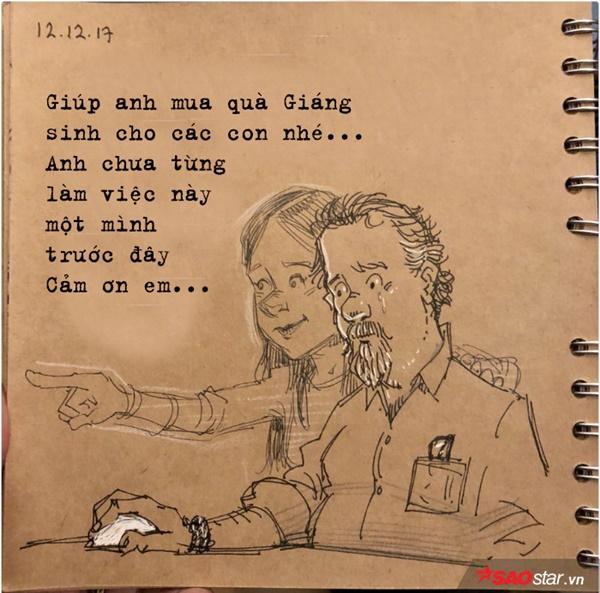 12.12.17
Giúp anh mua quà Giáng
sinh cho các con nhé...
Anh chưa từng
làm việc này
một mình
trước đây
Cảm ơn em...
SAOstar.vn